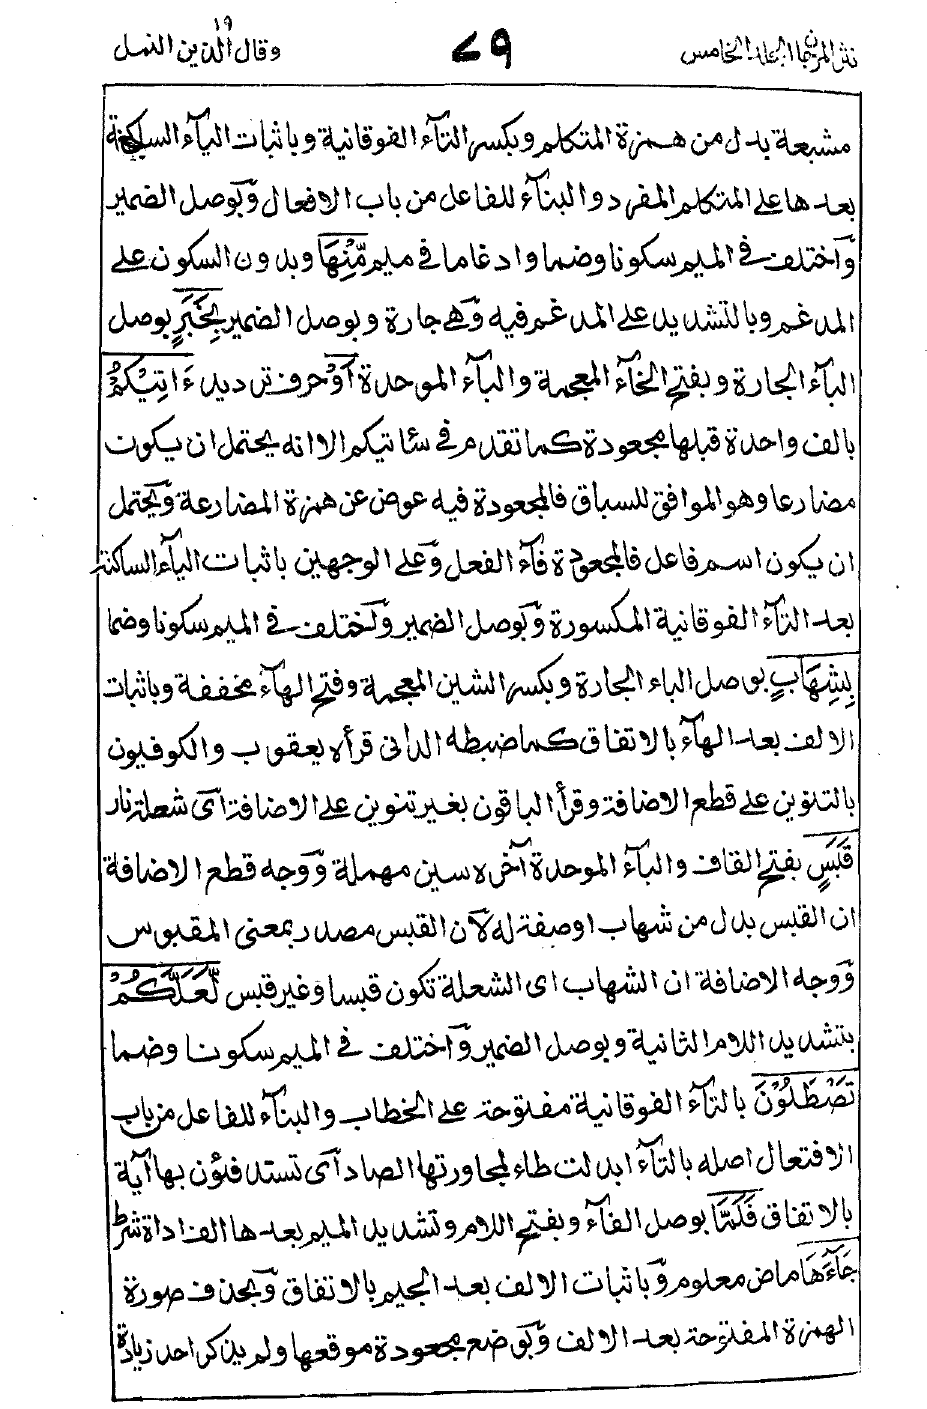 نثر المرجان الجلد الخامس
٧٩
وقال الذين ١٩ النمل
مشبعة بدل من همزة المتكلم وبكسر التآء الفوقانية وباثبات اليآء الساكنة
بعدها على المتكلم المفرد والبنآء للفاعل من باب الافعال وبوصل الضمير
واختلف فى الميم سكونا وضما وادغاما فى ميم مِّنْهَا وبدون السكون على
المدغم وبالتشديد على المدغم فيه وهى جارة وبوصل الضمير بِخَبَرٍ بوصل
البآء الجارة وبفتح الخآء المعجمة والبآء الموحدة أَوْ حرف ترديد ءَاتِيْكُمْ
بالف واحدة قبلها مجعودة كما تقدم فى سئاتيكم الا انه يحتمل ان يكون
مضارعا وهو الموافق للسباق فالمجعودة فيه عوض عن همزة المضارعة ويحتمل
ان يكون اسم فاعل فالمجعودة فآء الفعل وعلى الوجهين باثبات اليآء الساكنة
بعد التآء الفوقانية المكسورة وبوصل الضمير واختلف فى الميم سكونا وضما
بِشِهَابٍ بوصل الباء الجارة وبكسر الشين المعجمة وفتح الهآء مخففة وباثبات
الالف بعد الهآء بالاتفاق كما ضبطه الدانى قرأه يعقوب والكوفيون
بالتنوين على قطع الاضافة وقرأ الباقون بغير تنوين على الاضافة اى شعلة نار
قَبَسٍ بفتح القاف والبآء الموحدة آخره سين مهملة ووجه قطع الاضافة
ان القبس بدل من شهاب او صفة له لان القبس مصدر بمعنى المقبوس
ووجه الاضافة ان الشهاب اى الشعلة تكون قبسا وغير قبس لَّعَلَّكُمْ
بتشديد اللام الثانية وبوصل الضمير واختلف فى الميم سكونا وضما
تَصْطَلُوْنَ بالتآء الفوقانية مفتوحة على الخطاب والبنآء للفاعل من باب
الافتعال اصله بالتآء ابدلت طاء لمجاورتها الصاد اى تستدفئون بها آية
بالاتفاق فَلَمَّا بوصل الفآء وبفتح اللام وتشديد الميم بعدها الف اداة شرط
جَآءَهَا ماض معلوم وباثبات الالف بعد الجيم بالاتفاق وبحذف صورة
الهمزة المفتوحة بعد الالف وبوضع مجعودة موقعها ولم يذكر احد زيادة